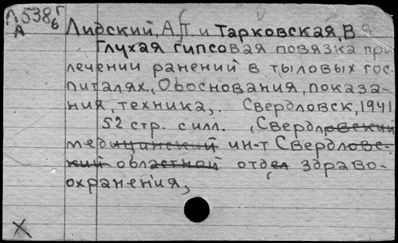 Л538г
А  6
Лидский, А.Т. и Тарковская, В Я
Глухая гипсовая повязка при
лечении ранений в тыловых гос-
питалях, Обоснования, показа-
ния, техника,. Свердловск, 1941
52 стр. с илл. (Свердловский
медицинский ин-т Свердловс-
кий областной отдел здраво-
охранения,
X